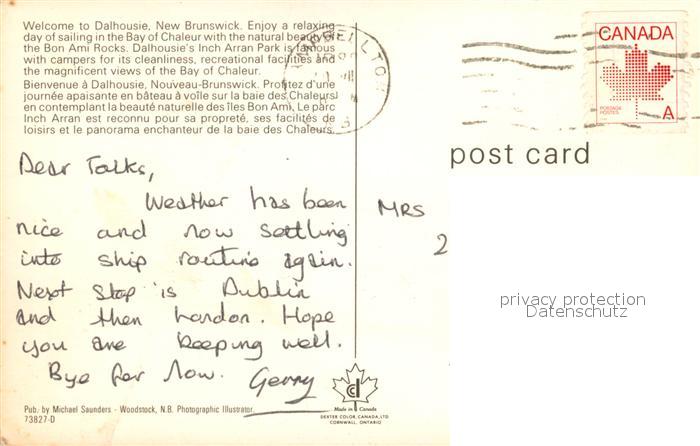 Welcome to Dalhousie, New Brunswick. Enjoy a relaxing
day of sailing in the Bay of Chaleur with the natural beauty of
the Bon Ami Rocks. Dalhousie's Inch Arran Park is famous
with campers for its cleanliness, recreational facilities and
the magnificent views of the Bay of Chaleur.
Bienvenue à Dalhousie, Nouveau-Brunswick. Profitez d'une
journée apaisante en bâteau à voîle sur la baie des Chaleurs
en contemplant la beauté naturelle des îles Bon Ami. Le parc
Inch Arran est reconnu pour sa propreté, ses facilités de
loisirs et le panorama enchanteur de la baie des Chaleurs.
CANADA
POSTAGE
POSTES
A
post card
Dear Talks,
Weather has been
nice and now settling
into ship routine again.
Next stop is Dublin
and then London. Hope
you are keeping well.
Bye for Now. Gerry
MRS
2
privacy protection
Datenschutz
Pub. by Michael Saunders - Woodstock, N.B. Photographic Illustrator
73827-D
Made in Canada
DEXTER COLOR, CANADA, LTD
CORNWALL, ONTARIO